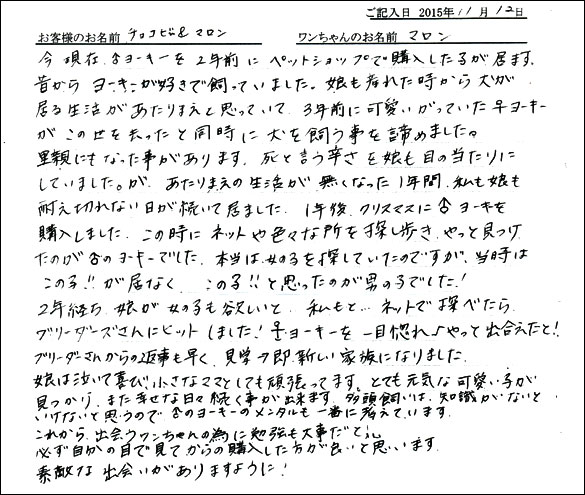 ご記入日 2015年11月12日
お客様のお名前 チョコビ&マロン ワンちゃんのお名前 マロン
今現在、♂ヨーキーを2年前にペットショップで購入した子が居ます。
昔からヨーキーが好きで飼っていました。娘も産れた時から犬が
居る生活があたりまえと思っていて、3年前に可愛いがっていた♀ヨーキー
がこの世を去ったと同時に犬を飼う事を諦めました。
里親にもなった事があります。死と言う辛さを娘も目の当たりに
していました。が、あたりまえの生活が無くなった1年間、私も娘も
耐え切れない日が続いて居ました。1年後、クリスマスに♂ヨーキを
購入しました。この時にネットや色々な所を探し歩き、やっと見つけ
たのが♂のヨーキーでした。本当は女の子を探していたのですが、当時は
この子!!が居なく、この子!!と思ったのが男の子でした!
2年経ち、娘が女の子も欲しいと、私もと…ネットで探べたら
ブリーダーズさんにヒットしました!♀ヨーキーを一目惚れ♪やっと出合えたと!
ブリーダーさんからの返事も早く、見学→即新しい家族になりました。
娘は泣いて喜び、小さなママとしても頑張ってます。とても元気な可愛い子が
見つかり、また幸せな日々続く事が出来ます。多頭飼いは、知識がないと
いけないと思うので♂のヨーキーのメンタルも一番に考えています。
これから、出会うワンちゃんの為に勉強も大事だと
必ず自分の目で見てからの購入した方が良いと思います。
素敵な出会いがありますように!